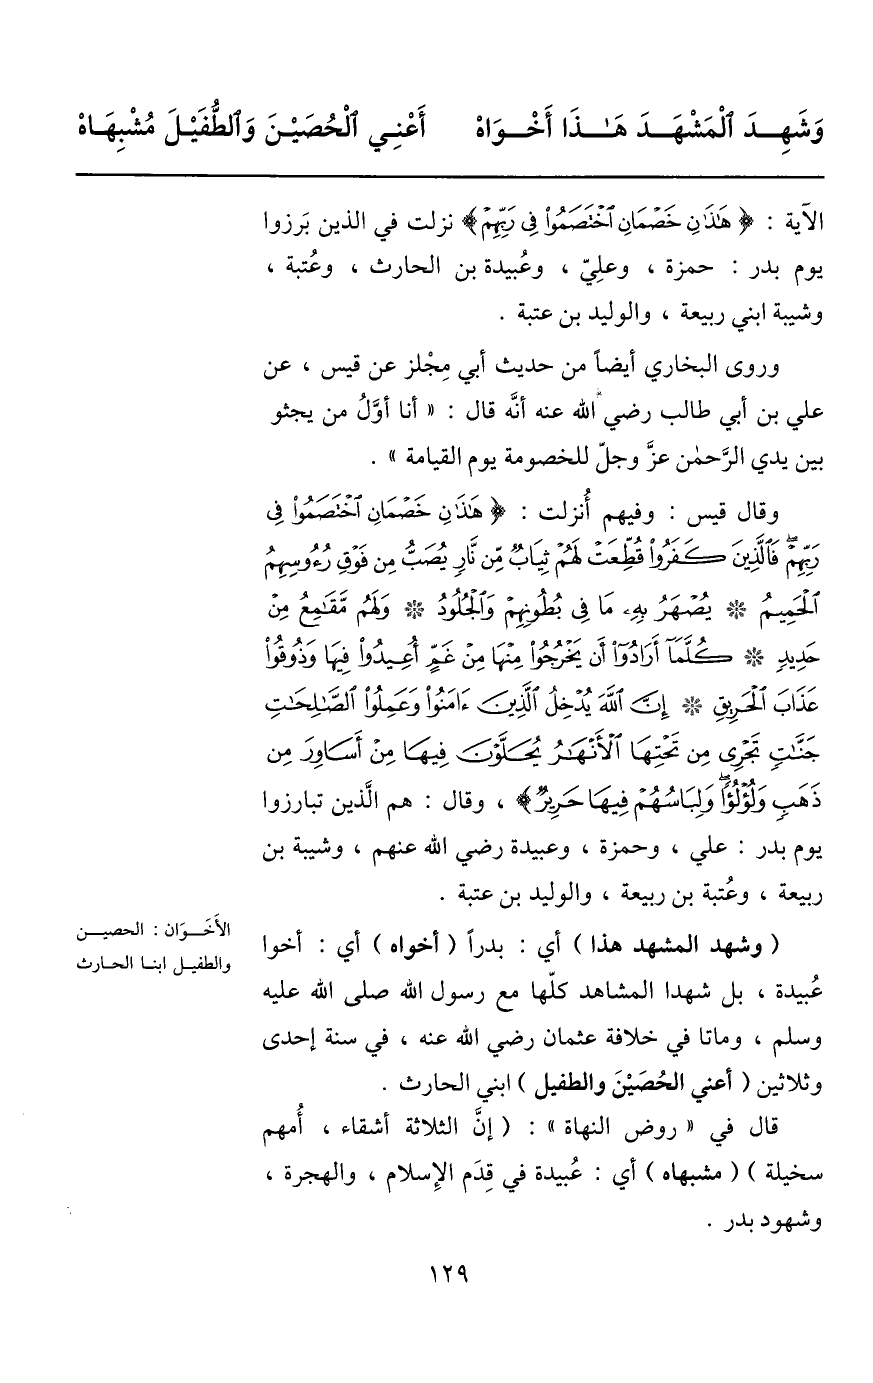 وَشَهِدَ ٱلْمَشْهَدَ هَـٰذَا أَخْوَاهْ أَعْنِي ٱلْحُصَيْنَ وَٱلطُّفَيْلَ مُشْبِهَاهْ
الآية : ﴿ هَٰذَانِ خَصْمَانِ ٱخْتَصَمُوا۟ فِى رَبِّهِمْ ﴾ نزلت في الذين بَرزوا
يوم بدر : حمزة ، وعليّ ، وعُبيدة بن الحارث ، وعُتبة ،
وشيبة ابني ربيعة ، والوليد بن عتبة .
وروى البخاري أيضاً من حديث أبي مِجْلز عن قيس ، عن
علي بن أبي طالب رضي الله عنه أنَّه قال : « أنا أوَّلُ من يجثو
بين يدي الرَّحمٰن عزَّ وجلّ للخصومة يوم القيامة » .
وقال قيس : وفيهم أُنزلت : ﴿ هَٰذَانِ خَصْمَانِ ٱخْتَصَمُوا۟ فِى
رَبِّهِمْ ۖ فَٱلَّذِينَ كَفَرُوا۟ قُطِّعَتْ لَهُمْ ثِيَابٌ مِّن نَّارٍ يُصَبُّ مِن فَوْقِ رُءُوسِهِمُ
ٱلْحَمِيمُ ❊ يُصْهَرُ بِهِۦ مَا فِى بُطُونِهِمْ وَٱلْجُلُودُ ❊ وَلَهُم مَّقَـٰمِعُ مِنْ
حَدِيدٍ ❊ كُلَّمَآ أَرَادُوٓا۟ أَن يَخْرُجُوا۟ مِنْهَا مِنْ غَمٍّ أُعِيدُوا۟ فِيهَا وَذُوقُوا۟
عَذَابَ ٱلْحَرِيقِ ❊ إِنَّ ٱللَّهَ يُدْخِلُ ٱلَّذِينَ ءَامَنُوا۟ وَعَمِلُوا۟ ٱلصَّـٰلِحَـٰتِ
جَنَّـٰتٍ تَجْرِى مِن تَحْتِهَا ٱلْأَنْهَـٰرُ يُحَلَّوْنَ فِيهَا مِنْ أَسَاوِرَ مِن
ذَهَبٍ وَلُؤْلُؤًا ۖ وَلِبَاسُهُمْ فِيهَا حَرِيرٌ ﴾ ، وقال : هم الَّذين تبارزوا
يوم بدر : علي ، وحمزة ، وعبيدة رضي الله عنهم ، وشيبة بن
ربيعة ، وعُتبة بن ربيعة ، والوليد بن عتبة .
( وشهد المشهد هذا ) أي : بدراً ( أخواه ) أي : أخوا
عُبيدة ، بل شهدا المشاهد كلّها مع رسول الله صلى الله عليه
وسلم ، وماتا في خلافة عثمان رضي الله عنه ، في سنة إحدى
وثلاثين ( أعني الحُصَيْنَ والطفيل ) ابني الحارث .
قال في « روض النهاة » : ( إنَّ الثلاثة أشقاء ، أُمهم
سخيلة ) ( مشبهاه ) أي : عُبيدة في قِدَم الإسلام ، والهجرة ،
وشهود بدر .
الأَخَوَان : الحصيـن
والطفيـل ابنـا الحـارث
١٢٩